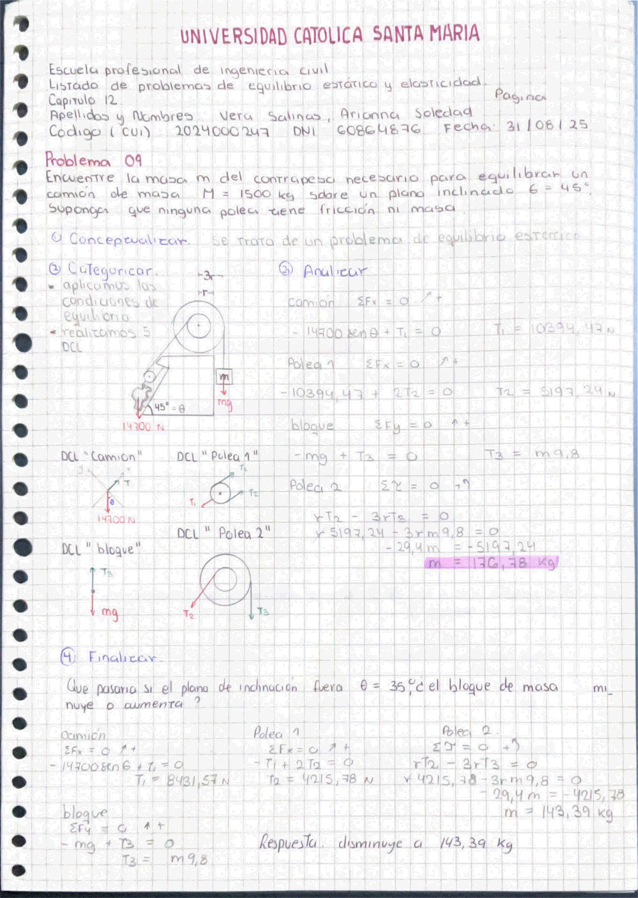 UNIVERSIDAD CATOLICA SANTA MARIA
Escuela profesional de ingenieria civil
Listado de problemas de equilibrio estático y elasticidad.
Capitulo 12.
Pagina
Apellidos y Nombres Vera Salinas, Arianna Soledad
Código (CUI) 2024000247 DNI 60864876 Fecha: 31/08/25
Problema 09
Encuentre la masa m del contrapeso necesario para equilibrar un
camión de masa M = 1500 kg sobre un plano inclinado θ = 45°.
Suponga que ninguna polea tiene fricción ni masa
① Conceptualizar. Se trata de un problema de equilibrio estatico
② Categoricar.
• aplicamos las
condiciones de
equilibrio
• realizamos 5
DCL
3r
r
m
mg
45° = θ
14700 N
③ Analizar
camion ΣFx = 0 ↗+
- 14700 senθ + T₁ = 0 T₁ = 10394,47 N
Polea 1 ΣFx = 0 ↗+
-10394,47 + 2T2 = 0 T2 = 5197,24 N
bloque ΣFy = 0 ↑+
- mg + T3 = 0 T3 = m9,8
Polea 2 Στ = 0 +↰
rT2 - 3rT3 = 0
r 5197,24 - 3rm9,8 = 0
-29,4m = -5197,24
m = 176,78 kg
DCL "Camion"
T
θ
14700 N
DCL "Polea 1"
T2
T2
T1
DCL "bloque"
T3
mg
DCL "Polea 2"
T2
T3
④ Finalizar
Que pasaria si el plano de inclinación fuera θ = 35°, ¿el bloque de masa mi_
nuye o aumenta?
camión
ΣFx = 0 ↗+
- 14700 senθ + T1 = 0
T1 = 8431,57 N
Polea 1
ΣFx = 0 ↗+
- T1 + 2T2 = 0
T2 = 4215,78 N
Polea 2
Στ = 0 +↰
rT2 - 3rT3 = 0
r 4215,78 - 3rm9,8 = 0
- 29,4m = -4215,78
m = 143,39 kg
bloque
ΣFy = 0 ↑+
- mg + T3 = 0
T3 = m9,8
Respuesta. disminuye a 143,39 kg